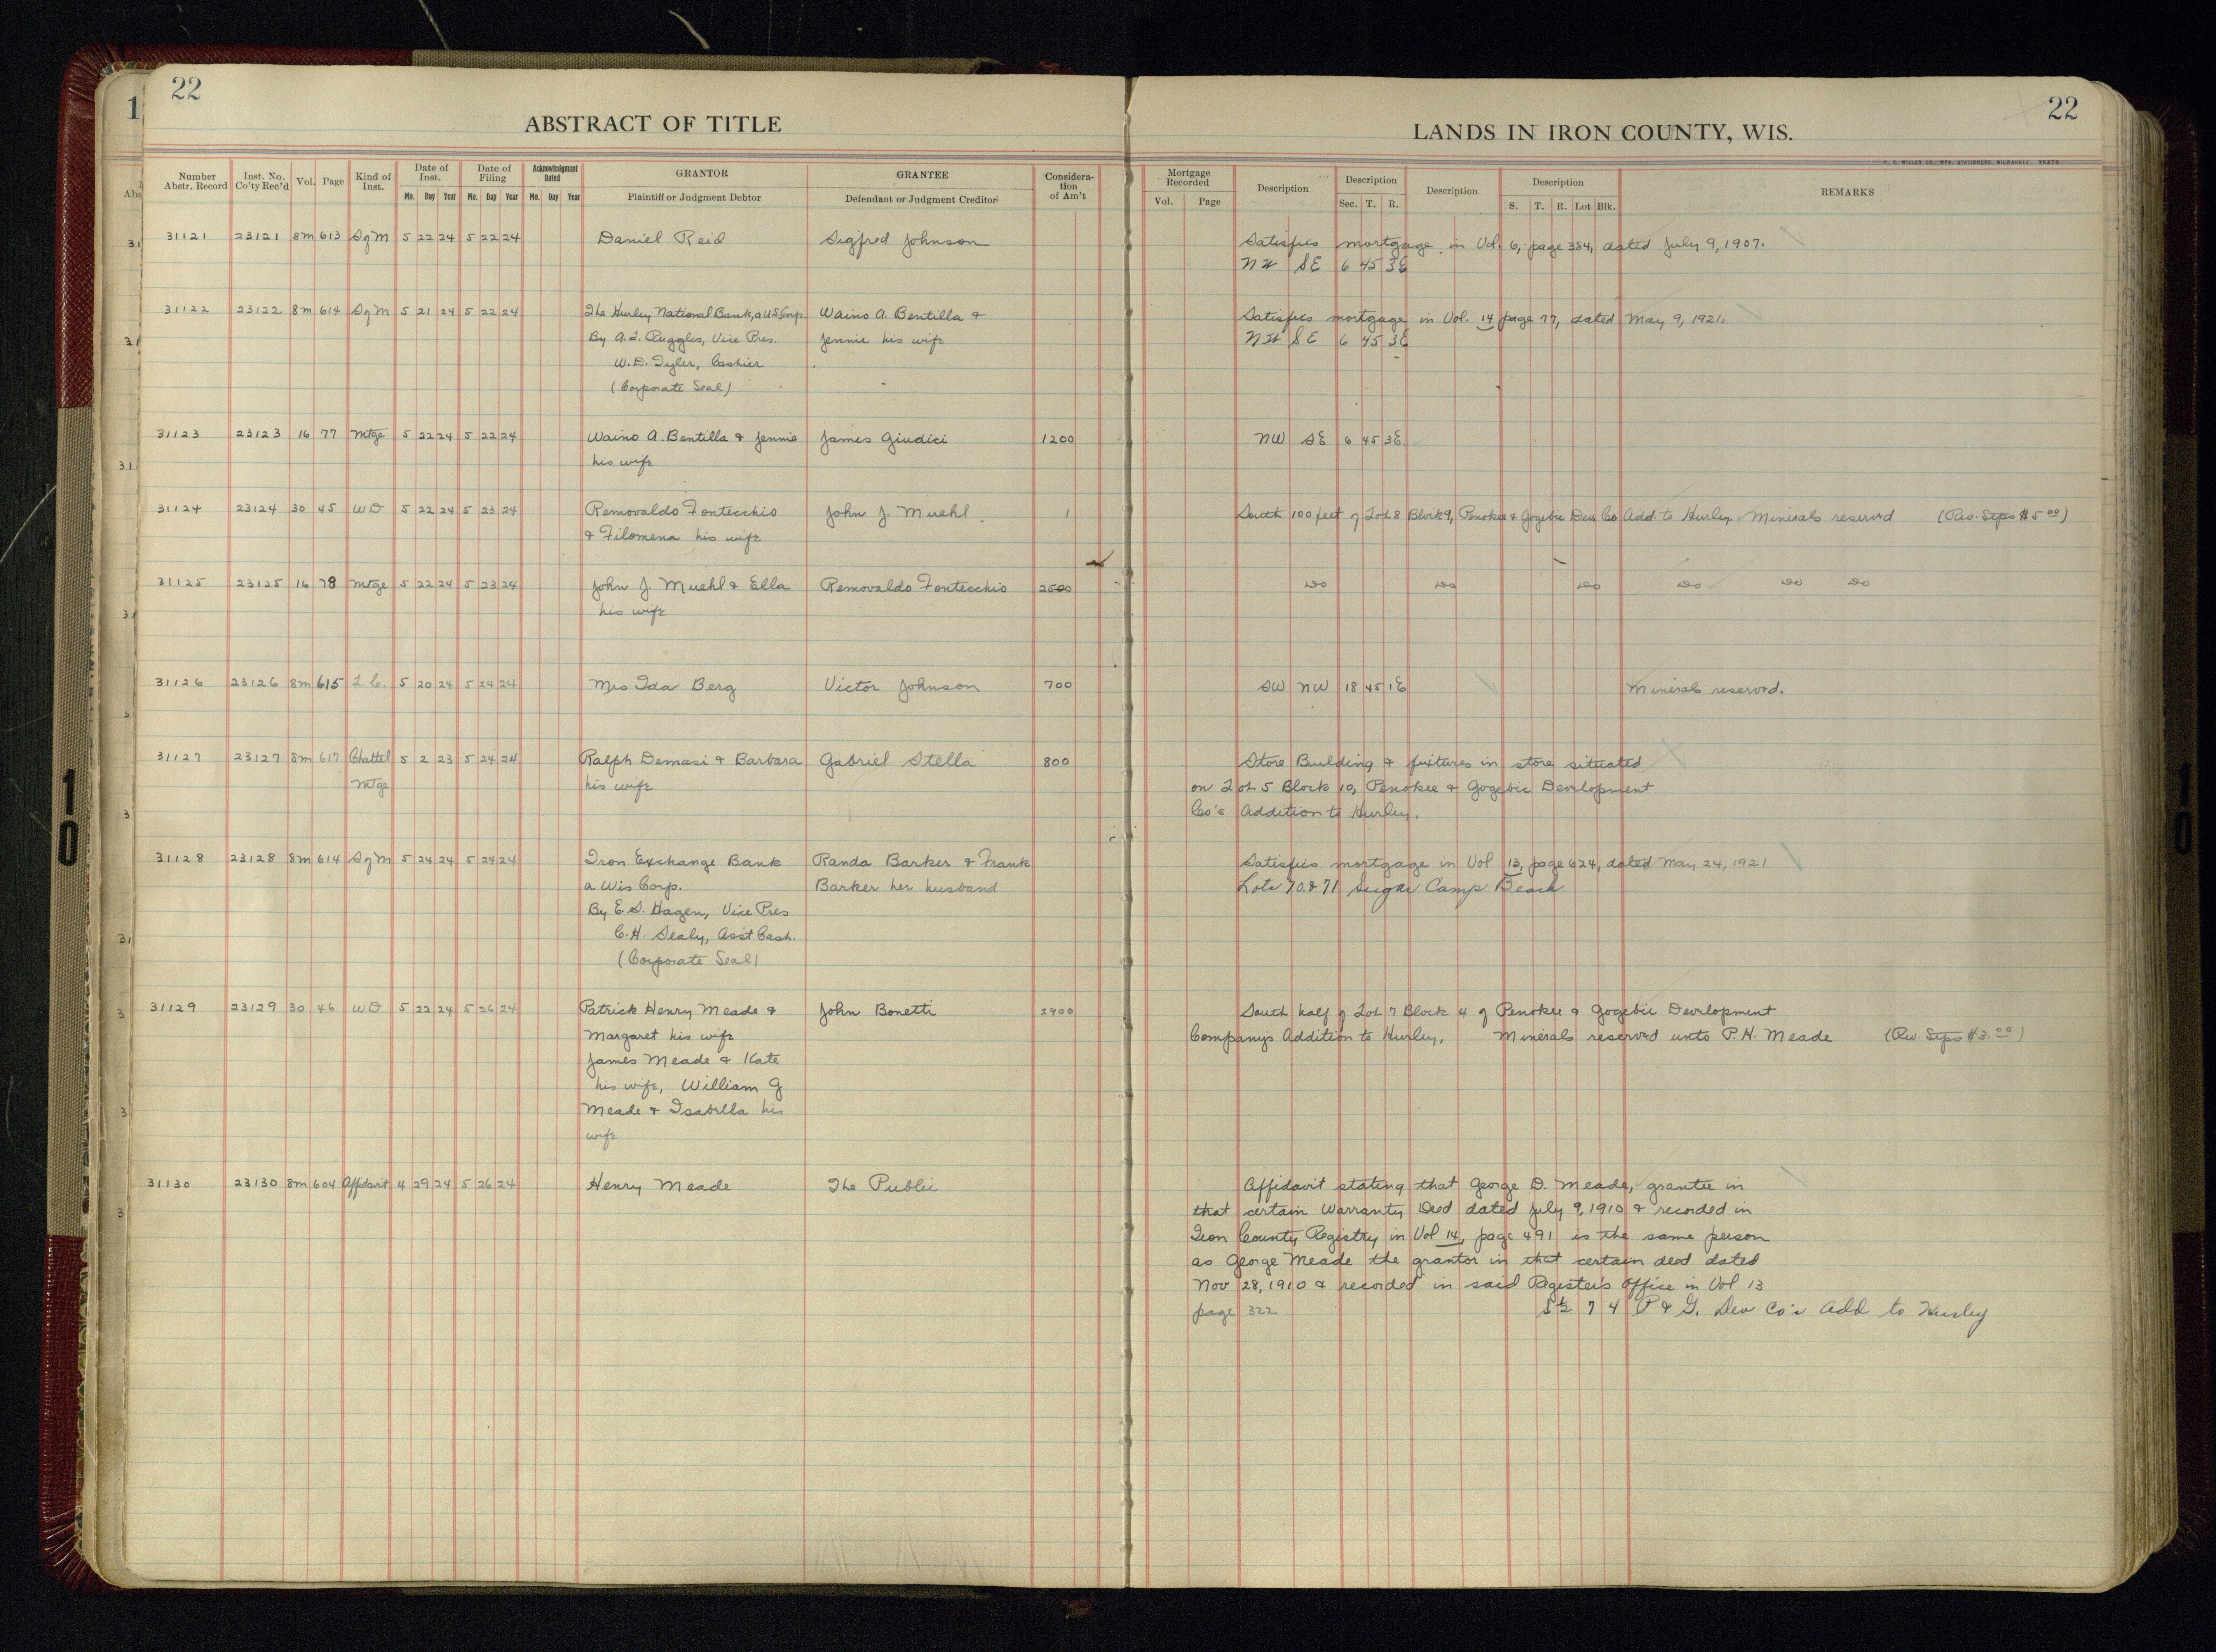 22
ABSTRACT OF TITLE
Number Abstr. Record Inst. No. Co'ty Rec'd Vol. Page Kind of Inst. Date of Inst. Date of Filing Acknowledgment Dated GRANTOR GRANTEE Consideration of Am't
Mo. Day Year Mo. Day Year Mo. Day Year Plaintiff or Judgment Debtor Defendant or Judgment Creditor
31121 23121 8m 613 SgM 5 22 24 5 22 24 Daniel Reid Sigfred Johnson
31122 23122 8m 614 SgM 5 21 24 5 22 24 The Hurley National Bank, a U.S. Corp. Waino A. Bentilla &
By A.L. Ruggles, Vice Pres. Jennie his wife
W.D. Tyler, Cashier
(Corporate Seal)
31123 23123 16 77 Mtge 5 22 24 5 22 24 Waino A. Bentilla & Jennie James Giudici 1200
his wife
31124 23124 30 45 WD 5 22 24 5 23 24 Removaldo Fontecchio John J. Muehl 1
& Filomena his wife
31125 23125 16 78 Mtge 5 22 24 5 23 24 John J. Muehl & Ella Removaldo Fontecchio 2500
his wife
31126 23126 8m 615 L C. 5 20 24 5 24 24 Mrs Ida Berg Victor Johnson 700
31127 23127 8m 617 Chattel 5 2 23 5 24 24 Ralph Demasi & Barbara Gabriel Stella 800
Mtge his wife
31128 23128 8m 614 SgM 5 24 24 5 24 24 Iron Exchange Bank Randa Barker & Frank
a Wis Corp. Barker her husband
By E.S. Hagen, Vice Pres
C.H. Sealy, Asst Cash.
(Corporate Seal)
31129 23129 30 46 WD 5 22 24 5 26 24 Patrick Henry Meade & John Bonetti 2900
Margaret his wife
James Meade & Kate
his wife, William G
Meade & Isabella his
wife
31130 23130 8m 604 Affidavit 4 29 24 5 26 24 Henry Meade The Public
22
LANDS IN IRON COUNTY, WIS.
H. C. MILLER CO., MFG. STATIONERS, MILWAUKEE
Mortgage Recorded Description Description Description Description REMARKS
Vol. Page Sec. T. R. S. T. R. Lot Blk.
Satisfies mortgage in Vol. 6, page 384, dated July 9, 1907.
NW SE 6 45 3E
Satisfies mortgage in Vol. 14 page 77, dated May 9, 1921.
NW SE 6 45 3E
NW SE 6 45 3E
South 100 feet of Lot 8 Block 9, Penokee & Gogebic Dev. Co Add. to Hurley. Minerals reserved (Rev. Stps $5 00)
Do Do Do Do Do Do
SW NW 18 45 1E Minerals reserved.
Store Building & fixtures in store situated
on Lot 5 Block 10, Penokee & Gogebic Development
Co's Addition to Hurley.
Satisfies mortgage in Vol 13, page 624, dated May 24, 1921
Lots 70 & 71 Sugar Camp Beach
South half of Lot 7 Block 4 of Penokee & Gogebic Development
Company's Addition to Hurley. Minerals reserved unto P.H. Meade (Rev. Stps $3.00)
Affidavit stating that George D. Meade, grantee in
that certain Warranty Deed dated July 9, 1910 & recorded in
Iron County Registry in Vol 14, page 491 is the same person
as George Meade the grantor in that certain deed dated
Nov 28, 1910 & recorded in said Register's Office in Vol 13
page 322 S½ 7 4 P & G. Dev Co's Add to Hurley
10
10